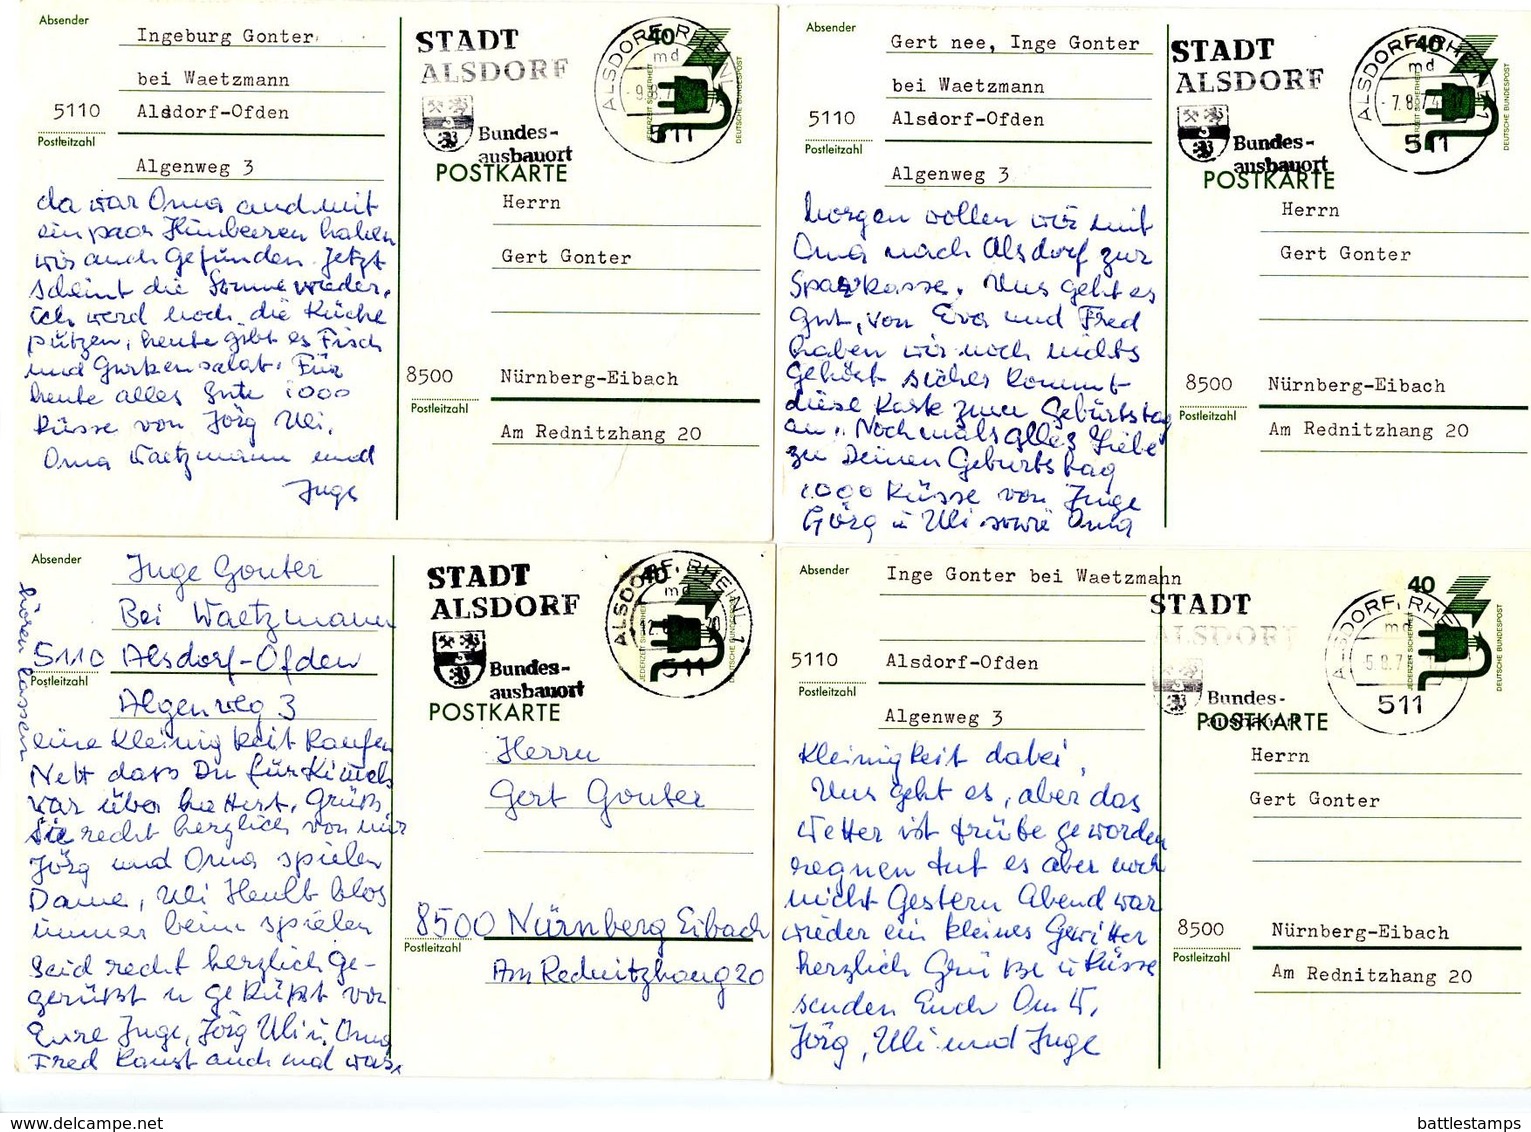 Absender
Ingeburg Gonter
bei Waetzmann
5110 Alsdorf-Ofden
Postleitzahl
Algenweg 3
da war Oma and mit
ein paar Himbeeren haben
wir auch gefunden. Jetzt
scheint die Sonne wieder,
ich werd noch die Küche
putzen, heute gibt es Fisch
und Gurkensalat. Für
heute alles Gute 1000
Küsse von Jörg Uli,
Oma Waetzmann und
Inge
STADT
ALSDORF
Bundes-
ausbauort
ALSDORF, RHEINL 1
md
511
40
JEDERZEIT SICHERHEIT
DEUTSCHE BUNDESPOST
POSTKARTE
Herrn
Gert Gonter
8500 Nürnberg-Eibach
Postleitzahl
Am Rednitzhang 20
Absender
Gert nee, Inge Gonter
bei Waetzmann
5110 Alsdorf-Ofden
Postleitzahl
Algenweg 3
Morgen wollen wir mit
Oma nach Alsdorf zur
Sparkasse. Uns geht es
gut, von Eva und Fred
haben wir noch nichts
gehört sicher kommt
diese Karte zum Geburtstag
an. Nochmals alles Liebe
zu Deinen Geburtstag
1000 Küsse von Inge
Görg u Uli sowie Oma
STADT
ALSDORF
Bundes-
ausbauort
ALSDORF, RHEINL 1
md
-7.8.74
511
40
JEDERZEIT SICHERHEIT
DEUTSCHE BUNDESPOST
POSTKARTE
Herrn
Gert Gonter
8500 Nürnberg-Eibach
Postleitzahl
Am Rednitzhang 20
Absender
Inge Gonter
Bei Waetzmann
5110 Alsdorf-Ofden
Postleitzahl
Algenweg 3
eine Kleinigkeit kaufen
Nett dass Du für
war über Grüß
Sie recht herzlich von mir
Jörg und Oma spielen
Dame, Uli Heult blos
immer beim spielen
Seid recht herzlich ge-
gerüßt u geküßt von
Eure Inge, Jörg Uli u. Oma
Fred kannst auch mal was
hören lassen
STADT
ALSDORF
Bundes-
ausbauort
ALSDORF, RHEINL 1
md
511
40
JEDERZEIT SICHERHEIT
DEUTSCHE BUNDESPOST
POSTKARTE
Herrn
Gert Gonter
8500 Nürnberg Eibach
Postleitzahl
Am Rednitzhang 20
Absender
Inge Gonter bei Waetzmann
5110 Alsdorf-Ofden
Postleitzahl
Algenweg 3
Kleinigkeit dabei,
Uns geht es, aber das
Wetter ist trübe geworden
regnen tut es aber noch
nicht Gestern Abend war
wieder ein kleines Gewitter
herzlich Grüße u Küsse
senden Euch Om W,
Jörg, Uli und Inge
STADT
ALSDORF
Bundes-
ausbauort
ALSDORF, RHE
md
5.8.7
511
40
JEDERZEIT SICHERHEIT
DEUTSCHE BUNDESPOST
POSTKARTE
Herrn
Gert Gonter
8500 Nürnberg-Eibach
Postleitzahl
Am Rednitzhang 20
www.delcampe.net
battlestamps